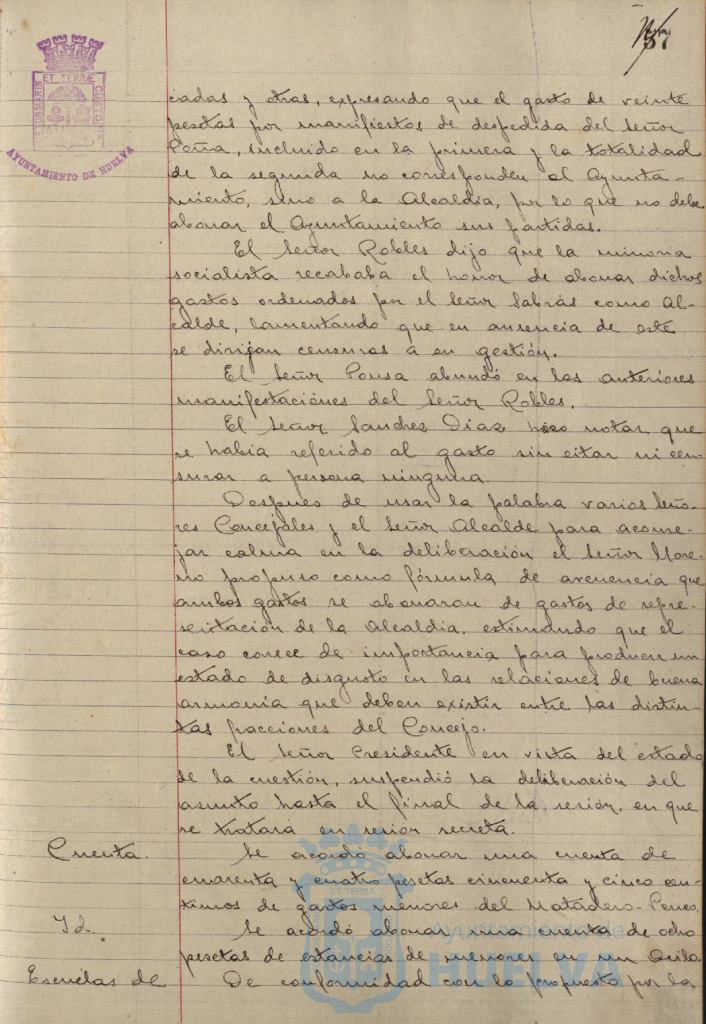 37
PORTUS MARIS ET TERRÆ CUSTODIA
AYUNTAMIENTO DE HUELVA
ciadas y otras, expresando que el gasto de veinte
pesetas por manifiestos de despedida del Señor
Peña, incluido en la primera y la totalidad
de la segunda no corresponden al Ayunta-
miento, sino a la Alcaldia, por lo que no debe
abonar el Ayuntamiento sus partidas.
El Señor Robles dijo que la minoria
socialista recababa el honor de abonar dichos
gastos ordenados por el Señor Sabrás como Al-
calde, lamentando que en ausencia de este
se dirijan censuras a su gestión.
El Señor Ponsa abundó en las anteriores
manifestaciónes del Señor Robles.
El Señor Sanchez Diaz hizo notar que
se habia referido al gasto sin citar ni cen-
surar a persona ninguna.
Despues de usar la palabra varios Seño-
res Concejales y el Señor Alcalde para aconse-
jar calma en la deliberación el Señor More-
no propuso como fórmula de avenencia que
ambos gastos se abonaran de gastos de repre-
sentación de la Alcaldia, estimando que el
caso carece de importancia para producir un
estado de disgusto en las relaciones de buena
armonia que deben existir entre las distin-
tas fracciones del Concejo.
El Señor Presidente en vista del estado
de la cuestión, suspendió la deliberación del
asunto hasta el final de la sesión, en que
se tratará en sesión secreta.
Cuenta. Se acordó abonar una cuenta de
cuarenta y cuatro pesetas cincuenta y cinco cen-
timos de gastos menores del Matadero-
Id. Se acordó abonar una cuenta de ocho
pesetas de estancias de menores en un Asilo.
Escuelas de De conformidad con lo propuesto por la
Ayuntamiento de
HUELVA